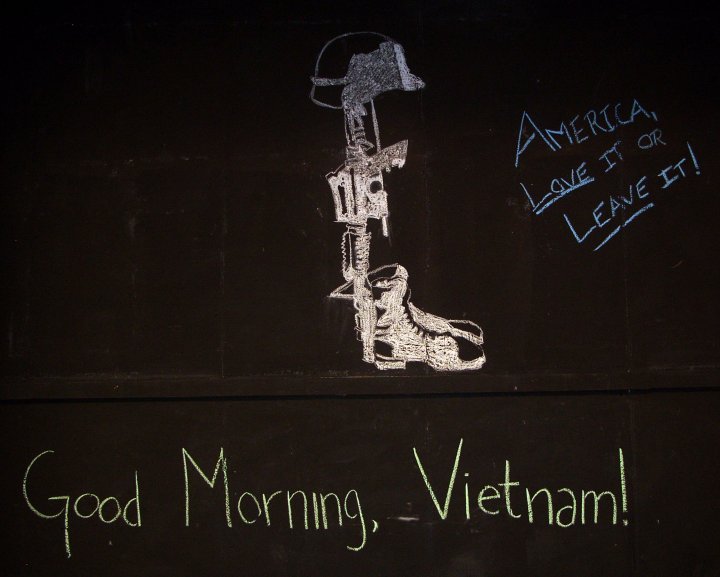 America,
Love it or
Leave it!
Good Morning, Vietnam!